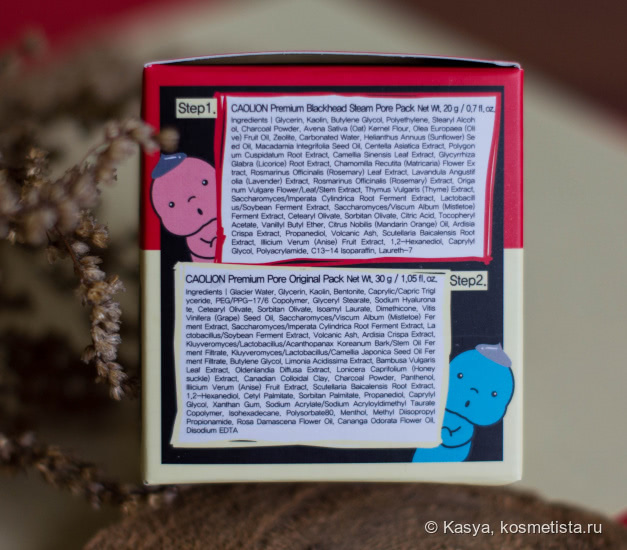 Step1.
CAOLION Premium Blackhead Steam Pore Pack Net Wt, 20 g / 0,7 fl,oz,
Ingredients | Glycerin, Kaolin, Butylene Glycol, Polyethylene, Stearyl Alcoh
ol, Charcoal Powder, Avena Sativa (Oat) Kernel Flour, Olea Europaea (Oli
ve) Fruit Oil, Zeolite, Carbonated Water, Helianthus Annuus (Sunflower) Se
ed Oil, Macadamia Integrifolia Seed Oil, Centella Asiatica Extract, Polygon
um Cuspidatum Root Extract, Camellia Sinensis Leaf Extract, Glycyrrhiza
Glabra (Licorice) Root Extract, Chamomilla Recutita (Matricaria) Flower Ex
tract, Rosmarinus Officinalis (Rosemary) Leaf Extract, Lavandula Angustif
olia (Lavender) Extract, Rosmarinus Officinalis (Rosemary) Extract, Origa
num Vulgare Flower/Leaf/Stem Extract, Thymus Vulgaris (Thyme) Extract,
Saccharomyces/Imperata Cylindrica Root Ferment Extract, Lactobacill
us/Soybean Ferment Extract, Saccharomyces/Viscum Album (Mistletoe)
Ferment Extract, Cetearyl Olivate, Sorbitan Olivate, Citric Acid, Tocopheryl
Acetate, Vanillyl Butyl Ether, Citrus Nobilis (Mandarin Orange) Oil, Ardisia
Crispa Extract, Propanediol, Volcanic Ash, Scutellaria Baicalensis Root
Extract, Illicium Verum (Anise) Fruit Extract, 1,2-Hexanediol, Caprylyl
Glycol, Polyacrylamide, C13-14 Isoparaffin, Laureth-7
CAOLION Premium Pore Original Pack Net Wt, 30 g / 1,05 fl, oz,
Step2.
Ingredients | Glacier Water, Glycerin, Kaolin, Bentonite, Caprylic/Capric Trigl
yceride, PEG/PPG-17/6 Copolymer, Glyceryl Stearate, Sodium Hyalurona
te, Cetearyl Olivate, Sorbitan Olivate, Isoamyl Laurate, Dimethicone, Vitis
Vinifera (Grape) Seed Oil, Saccharomyces/Viscum Album (Mistletoe) Fer
ment Extract, Saccharomyces/Imperata Cylindrica Root Ferment Extract, La
ctobacillus/Soybean Ferment Extract, Volcanic Ash, Ardisia Crispa Extract,
Kluyveromyces/Lactobacillus/Acanthopanax Koreanum Bark/Stem Oil Fer
ment Filtrate, Kluyveromyces/Lactobacillus/Camellia Japonica Seed Oil Fer
ment Filtrate, Butylene Glycol, Limonia Acidissima Extract, Bambusa Vulgaris
Leaf Extract, Oldenlandia Diffusa Extract, Lonicera Caprifolium (Honey
suckle) Extract, Canadian Colloidal Clay, Charcoal Powder, Panthenol,
Illicium Verum (Anise) Fruit Extract, Scutellaria Baicalensis Root Extract,
1,2-Hexanediol, Cetyl Palmitate, Sorbitan Palmitate, Propanediol, Caprylyl
Glycol, Xanthan Gum, Sodium Acrylate/Sodium Acryloyldimethyl Taurate
Copolymer, Isohexadecane, Polysorbate80, Menthol, Methyl Diisopropyl
Propionamide, Rosa Damascena Flower Oil, Cananga Odorata Flower Oil,
Disodium EDTA
© Kasya, kosmetista.ru